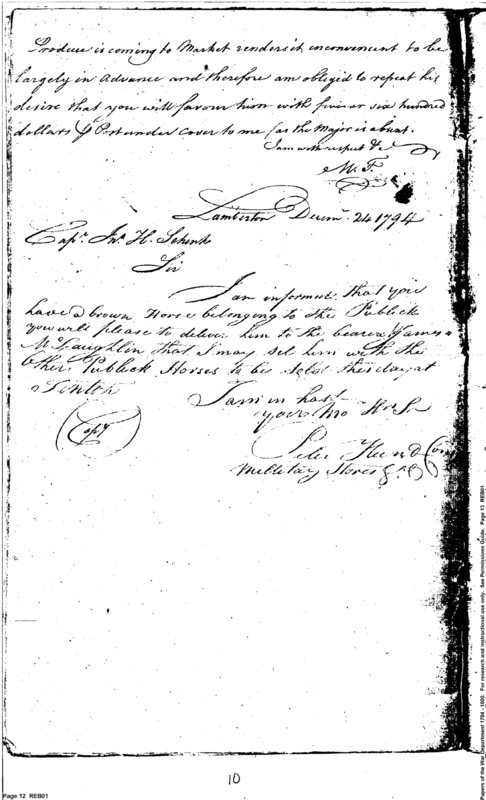 Produce is coming to Market renders it inconvenient to be
largely in advance and therefore am obliged to repeat his
desire that you will favour him with five or six hundred
dollars Post under cover to me (as the Major is absent.
I am with respect &c
M. F.
Lamberton Decem. 24 1794
Capt. Jno. H. Schenk
Sir
I am informed that you
have a brown Horse belonging to the Publick
you will please to deliver him to the bearer James
McLaughlin that I may sel him with the
Other Publick Horses to be sold this day at
Trenton
I am in hast
your Mo Hr Sr
(Copy)
Peter Hunt Com
Millitary Stores &c
10
Page 12 REB01
Papers of the War Department 1784 - 1800. For research and instructional use only. See Permissions Guide. Page 13 REB01